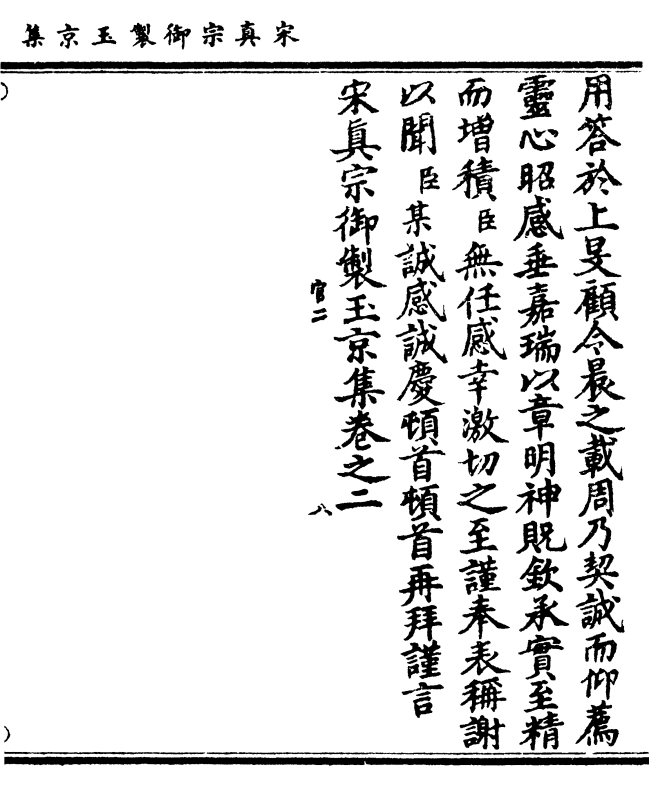 宋真宗御製玉京集
用答於上旻顧令晨之載周乃契誠而仰薦
靈心昭感垂嘉瑞以章明神貺欽承實至精
而增積臣無任感幸激切之至謹奉表稱謝
以聞臣某誠感誠慶頓首頓首再拜謹言
宋眞宗御製玉京集卷之二
官二
八